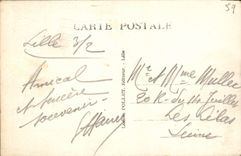 59
CARTE POSTALE
Lille 3/2
Amical
et sincère
souvenir
COLLET, Éditeur - Lille
Mr et Mme Muller
20 R. du 14 Juillet
Les Lilas
Seine